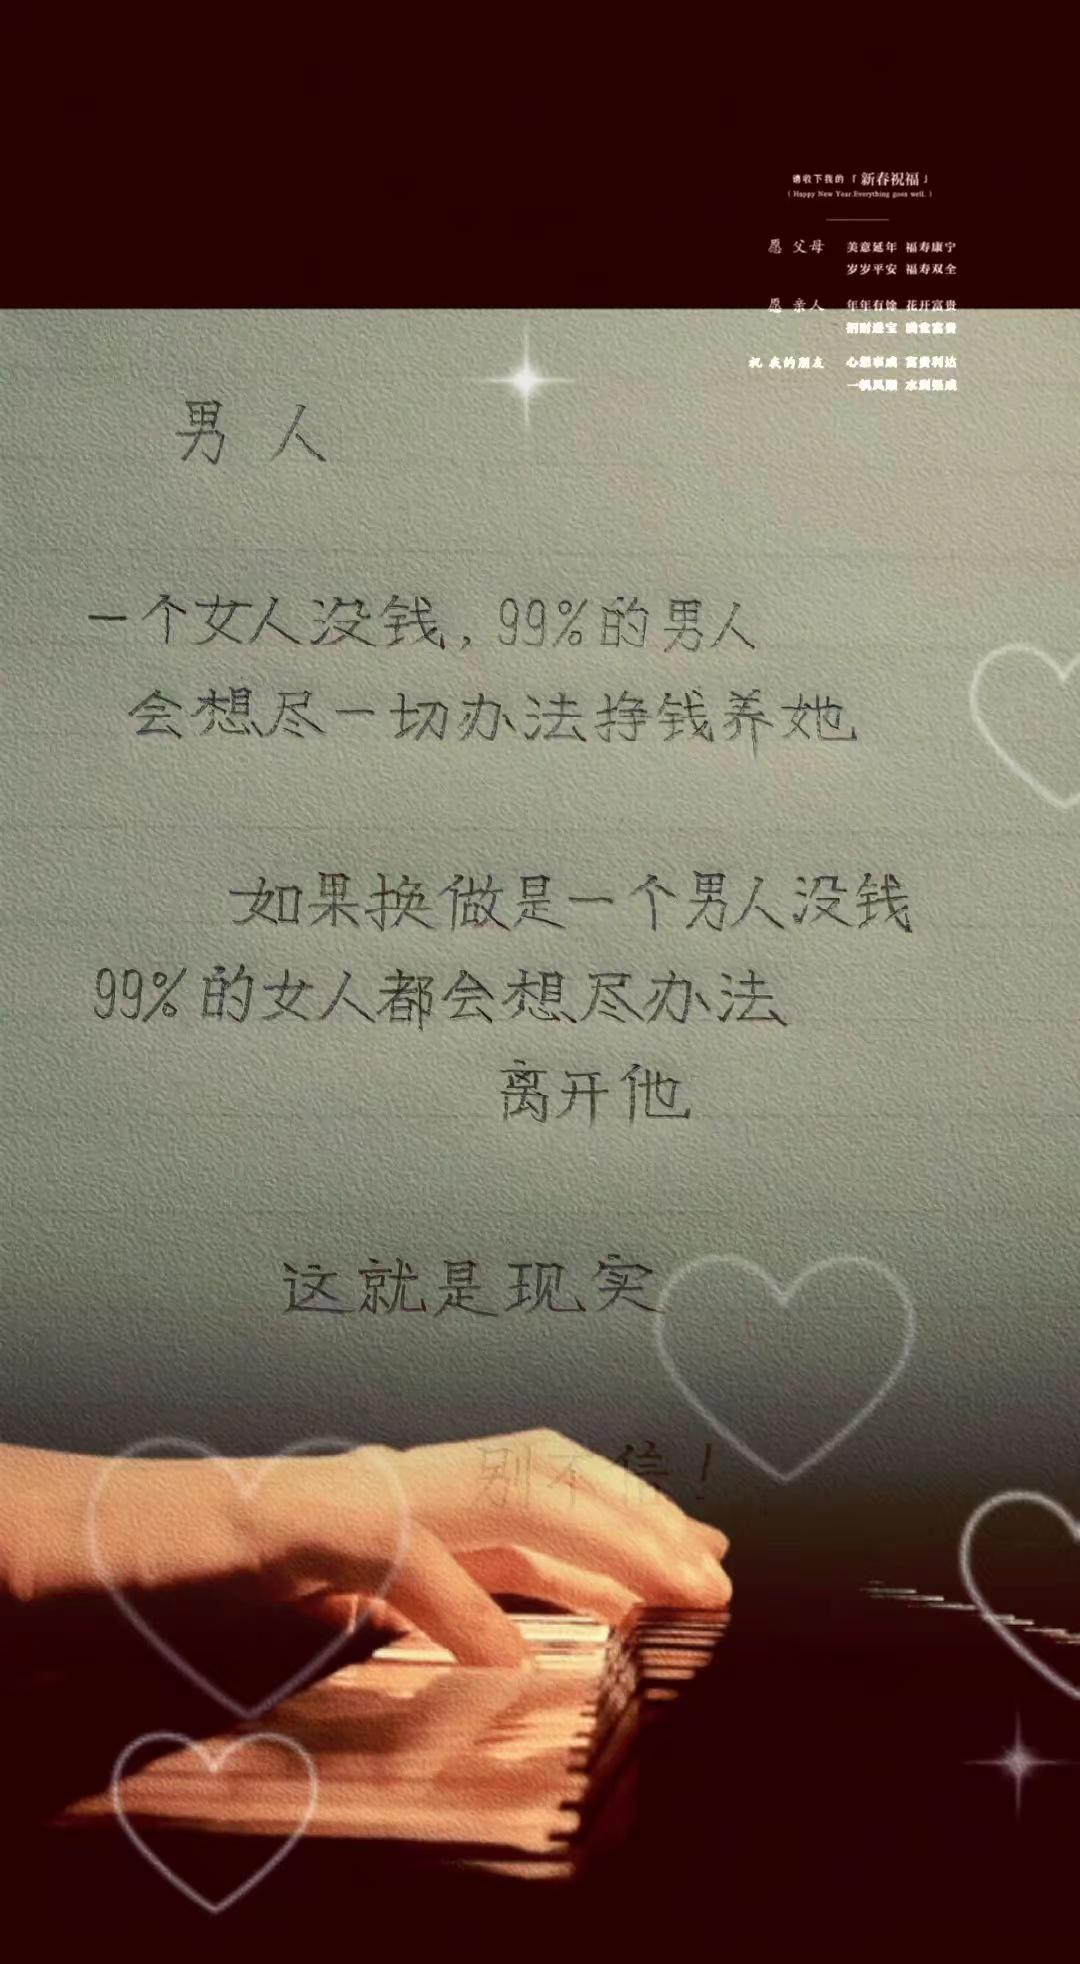 请收下我的「新春祝福」
( Happy New Year.Everything goes well. )
愿 父母 美意延年 福寿康宁
岁岁平安 福寿双全
愿 亲人 年年有馀 花开富贵
招财进宝 满堂富贵
祝 我的朋友 心想事成 富贵利达
一帆风顺 水到渠成
男 人
一个女人没钱，99%的男人
会想尽一切办法挣钱养她
如果换做是一个男人没钱
99%的女人都会想尽办法
离开他
这就是现实
别不信！